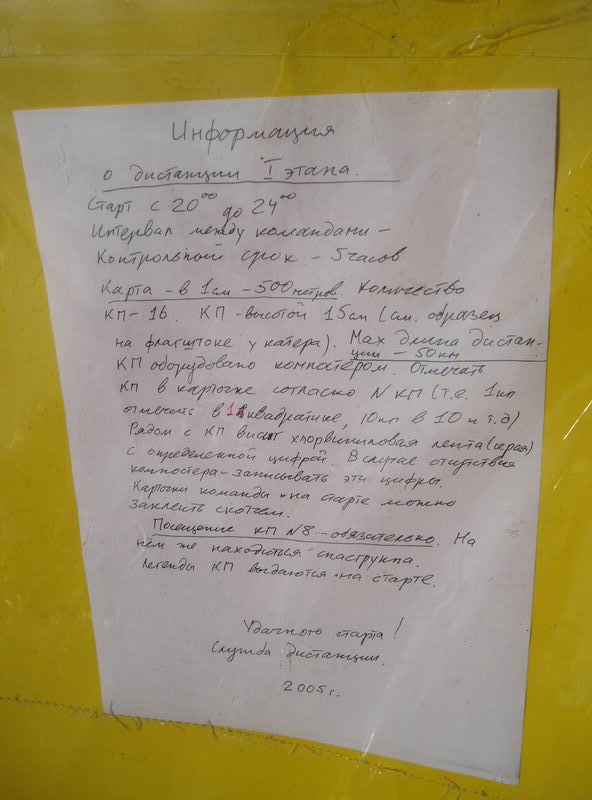 Информация
о дистанции I этапа.
Старт с 20⁰⁰ до 24⁰⁰
Интервал между командами –
Контрольный срок – 5 часов
Карта – в 1см – 500 метров. Количество
КП – 16. КП – высотой 15см (см. образец
на флагштоке у катера). Max длина дистан-
ции – 50 км
КП оборудовано компостером. Отмечать
КП в карточке согласно N КП (т.е. 1кп
отмечать в 1 квадратике, 10кп в 10 и т.д)
Рядом с КП висит хлорвиниловая лента (серая)
с определенной цифрой. В случае отсутствия
компостера – записывать эти цифры.
Карточки команды на старте можно
заклеить скотчем.
Посещение КП N8 – обязательно. На
нём же находиться спасгруппа.
Легенды КП выдаются на старте.
Удачного старта!
Служба дистанции.
2005г.